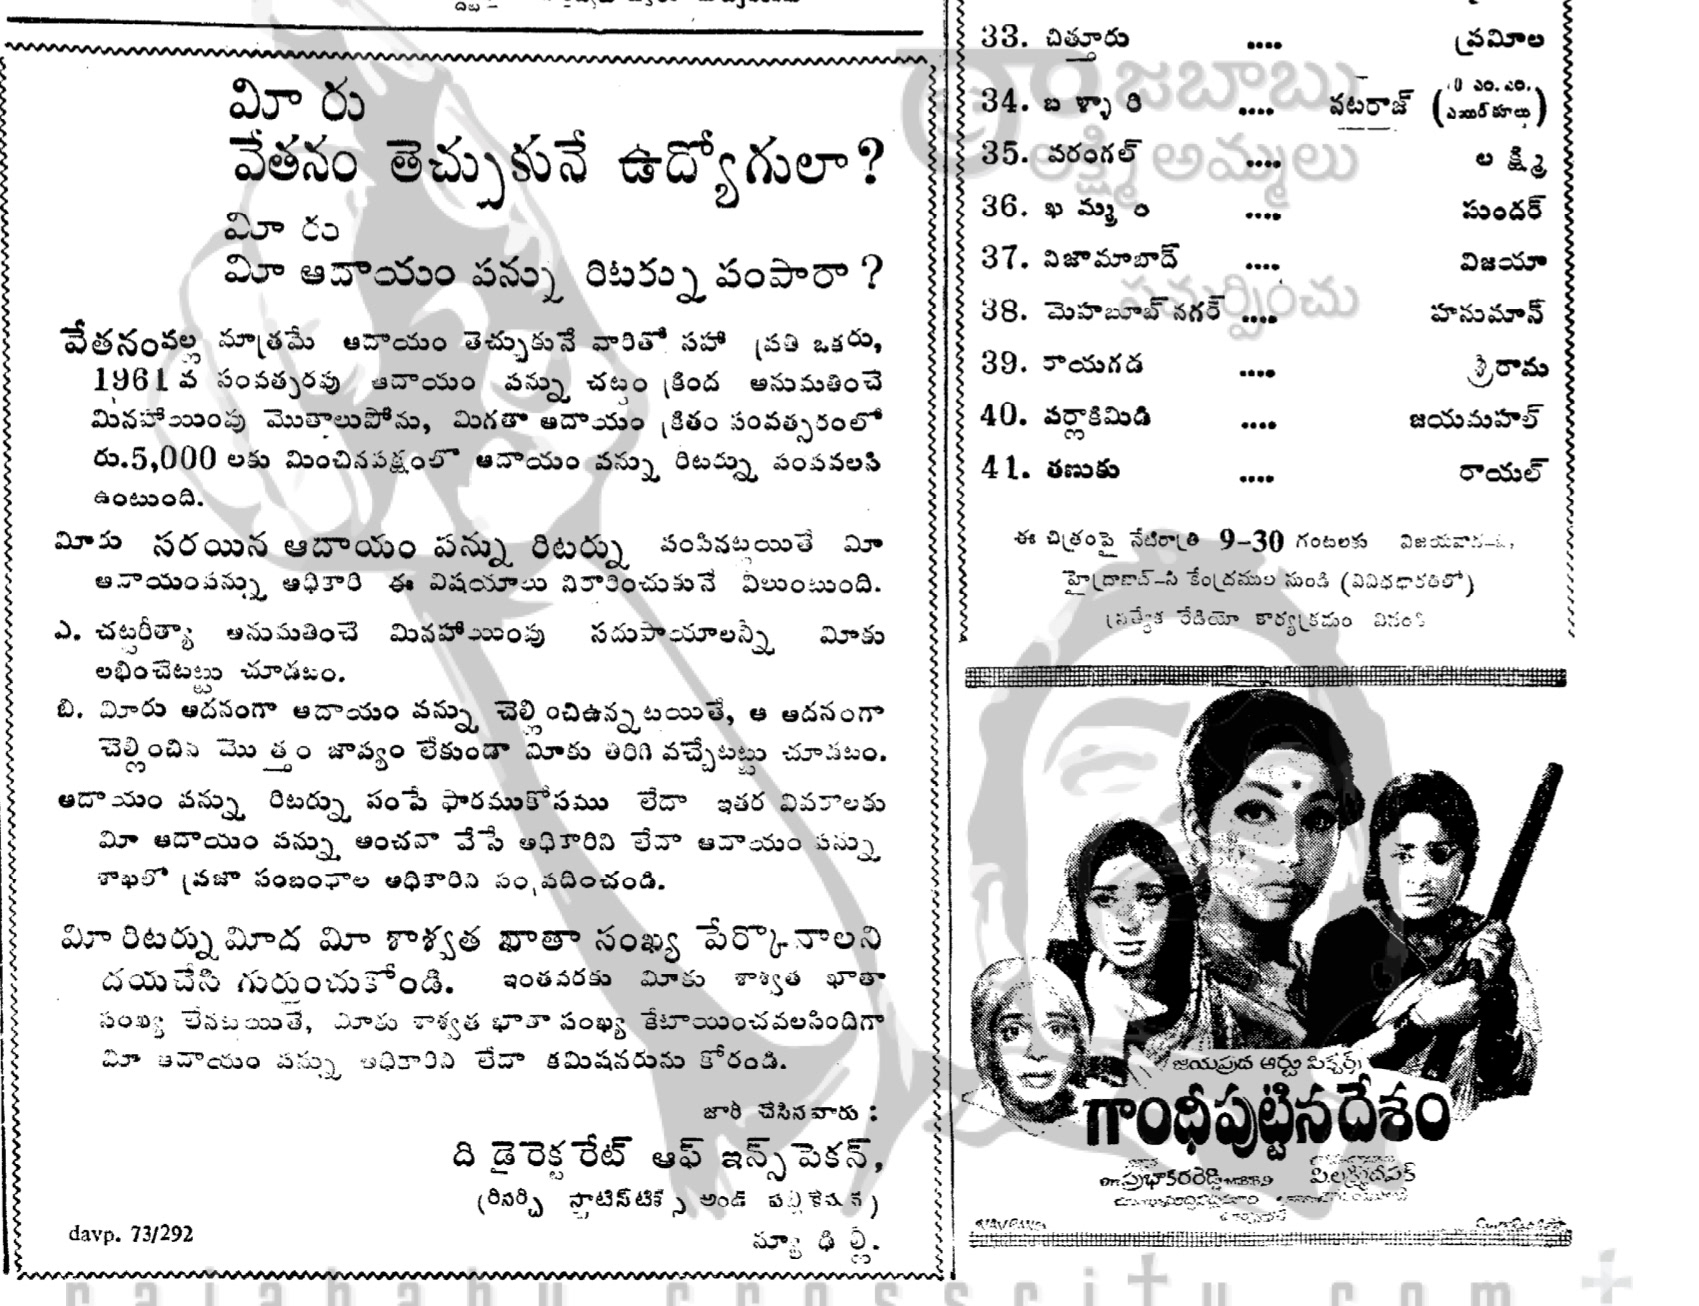 మీ రు
వేతనం తెచ్చుకునే ఉద్యోగులా?
మీ రు
మీ ఆదాయం పన్ను రిటర్ను పంపారా?
వేతనంవల్ల మాత్రమే ఆదాయం తెచ్చుకునే వారితో సహా ప్రతి ఒకరు,
1961 వ సంవత్సరపు ఆదాయం పన్ను చట్టం క్రింద అనుమతించే
మినహాయింపు మొత్తాలుపోను, మిగతా ఆదాయం క్రితం సంవత్సరంలో
రు.5,000 లకు మించినపక్షంలో ఆదాయం పన్ను రిటర్ను పంపవలసి
ఉంటుంది.
మీకు సరయిన ఆదాయం పన్ను రిటర్ను పంపినట్లయితే మీ
ఆదాయంపన్ను అధికారి ఈ విషయాలు నికారించుకునే వీలుంటుంది.
ఎ. చట్టరీత్యా అనుమతించే మినహాయింపు సదుపాయాలన్నీ మీకు
లభించేటట్టు చూడటం.
బి. మీరు అదనంగా ఆదాయం పన్ను చెల్లించిఉన్నటయితే, ఆ అదనంగా
చెల్లించిన మొత్తం జాప్యం లేకుండా మీకు తిరిగి వచ్చేటట్టు చూడటం.
ఆదాయం పన్ను రిటర్ను పంపే ఫారముకోసము లేదా ఇతర వివరాలకు
మీ ఆదాయం పన్ను అంచనా వేసే అధికారిని లేదా ఆదాయం పన్ను
శాఖలో ప్రజా సంబంధాల అధికారిని సంప్రదించండి.
మీ రిటర్ను మీద మీ శాశ్వత ఖాతా సంఖ్య పేర్కొనాలని
దయచేసి గుర్తుంచుకోండి. ఇంతవరకు మీకు శాశ్వత ఖాతా
సంఖ్య లేనటయితే, మీకు శాశ్వత ఖాతా సంఖ్య కేటాయించవలసిందిగా
మీ ఆదాయం పన్ను అధికారిని లేదా కమిషనరును కోరండి.
జారీ చేసినవారు :
ది డైరెక్టరేట్ ఆఫ్ ఇన్స్‌పెక్షన్,
(రిసర్చి స్టాటిస్‌టిక్స్ అండ్ పబ్లికేషన్)
న్యూ ఢిల్లీ.
davp. 73/292
33. చిత్తూరు .... ప్రమీల
34. బళ్ళారి .... నటరాజ్
35. వరంగల్ .... లక్ష్మి
36. ఖమ్మం .... సుందర్
37. నిజామాబాద్ .... విజయా
38. మెహబూబ్ నగర్ .... హనుమాన్
39. రాయగడ .... శ్రీరామ
40. పర్లాకిమిడి .... జయమహల్
41. తణుకు .... రాయల్
ఈ చిత్రంపై నేటిరాత్రి 9-30 గంటలకు విజయవాడ-
హైద్రాబాద్-సి కేంద్రముల నుండి (వివిధభారతిలో)
ప్రత్యేక రేడియో కార్యక్రమం వినండి
జయప్రద ఆర్టు పిక్చర్స్
గాంధీపుట్టినదేశం
ప్రభాకరరెడ్డి M.B.B.S
పి.లక్ష్మీదీపక్
రాజబాబు
లక్ష్మి అమ్మలు
సమర్పించు